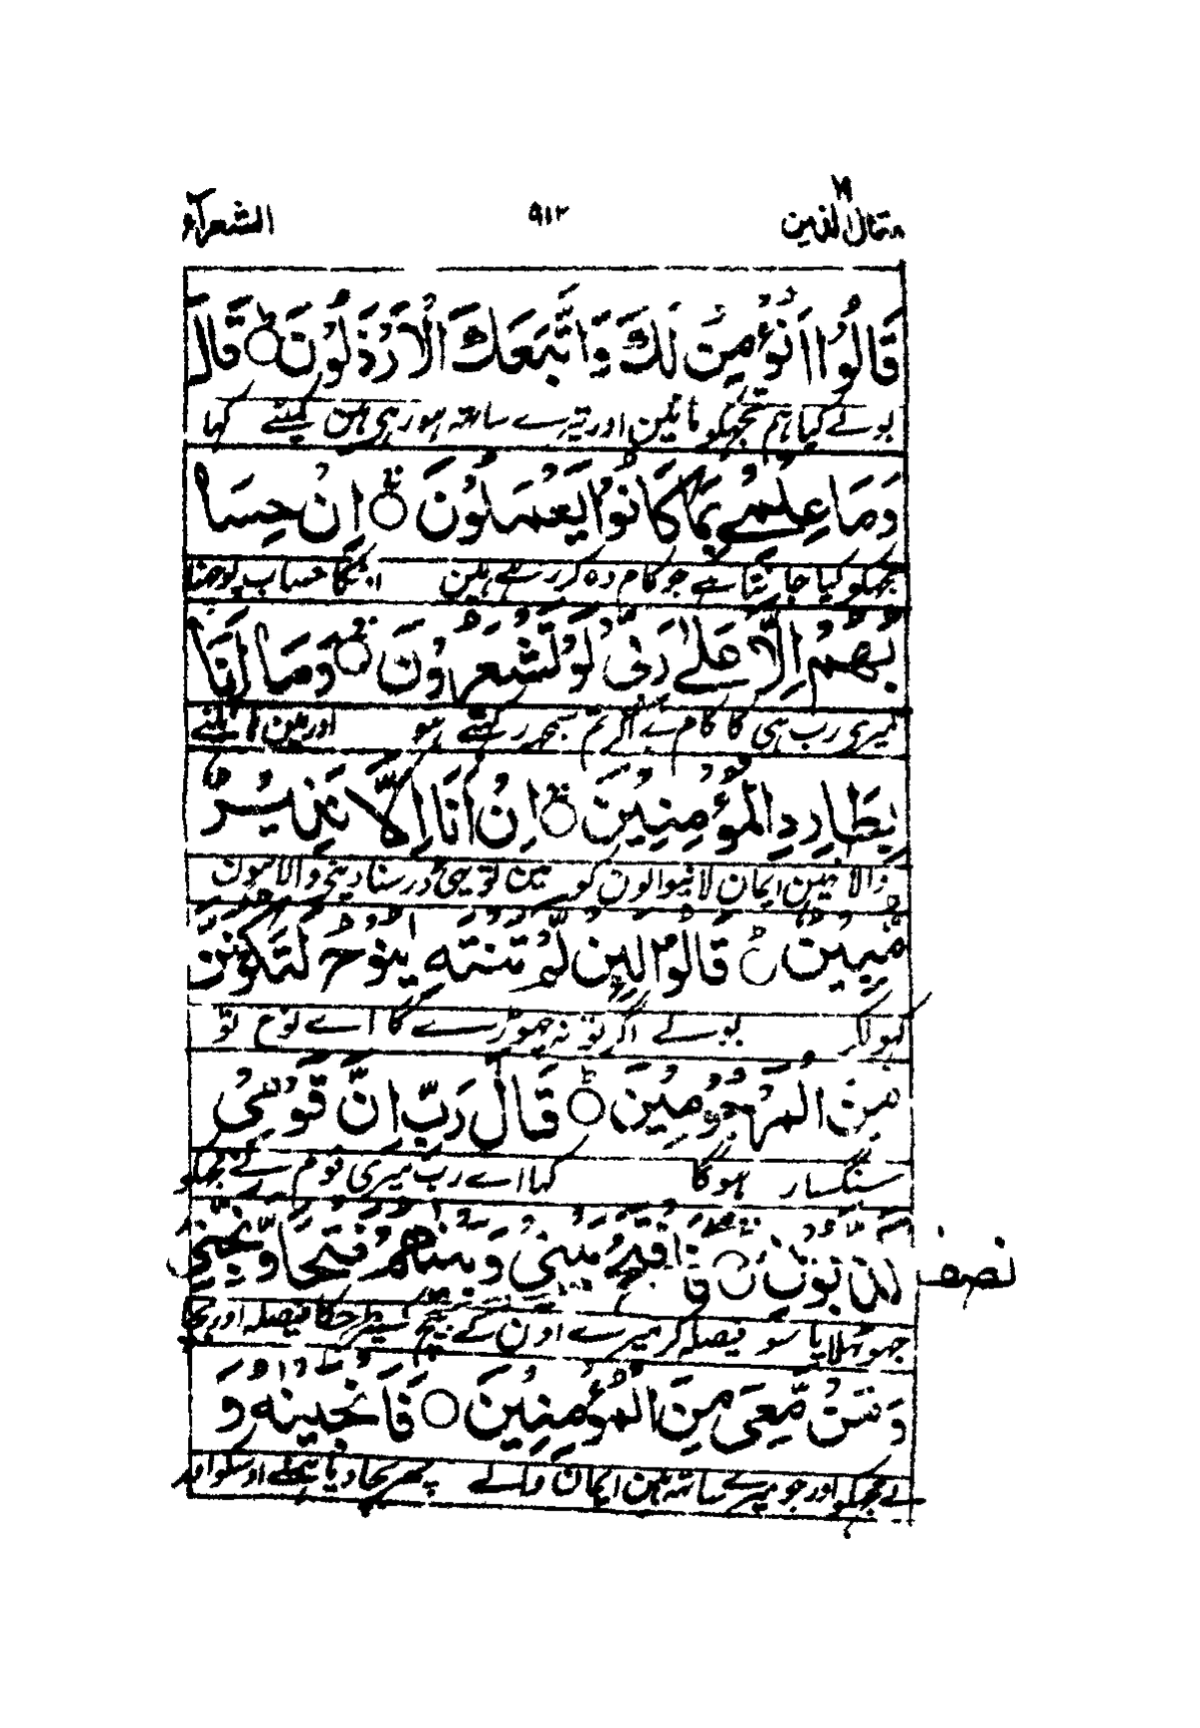 وقال الذین ١٩
٩١٢
الشعرآء
قَالُوْا اَنُؤْمِنُ لَكَ وَاتَّبَعَكَ الْاَرْذَلُوْنَ ○ قَالَ
بولے کیا ہم تجھکو مانین اور تیرے ساتھ ہو رہی ہین کمینے کہا
وَمَا عِلْمِیْ بِمَا كَانُوْا یَعْمَلُوْنَ ○ اِنْ حِسَا
مجھکو کیا جاننا ہے جو کام وہ کر رہے ہین انکا حساب پوچھنا
بُهُمْ اِلَّا عَلٰی رَبِّیْ لَوْ تَشْعُرُوْنَ ○ وَمَا اَنَا
میری رب ہی کا کام ہے اگر تم سمجھ رکھتے ہو اور مین
بِطَارِدِ الْمُؤْمِنِیْنَ ○ اِنْ اَنَا اِلَّا نَذِیْرٌ
والا نہین ایمان لانیوالون کو مین تو یہی ڈر سنا دینے والا ہون
مُّبِیْنٌ ○ قَالُوْا لَئِنْ لَّمْ تَنْتَهِ یٰنُوْحُ لَتَكُوْنَنَّ
کہولکر بولے اگر تو نہ چھوڑے گا اے نوح تو
مِنَ الْمَرْجُوْمِیْنَ ○ قَالَ رَبِّ اِنَّ قَوْمِیْ
سنگسار ہوگا کہا اے رب میری قوم نے مجھکو
كَذَّبُوْنِ ○ فَافْتَحْ بَیْنِیْ وَبَیْنَهُمْ فَتْحًا وَّنَجِّنِیْ
نصف
جھوٹلایا سو فیصلہ کر میرے اون کے بیچ کسیطرحکا فیصلہ اور بچا
وَمَنْ مَّعِیَ مِنَ الْمُؤْمِنِیْنَ ○ فَاَنْجَیْنٰهُ وَ
لے مجھکو اور جو میرے ساتھ ہین ایمان والے پھر بچا دیا ہمنے اوسکو اور